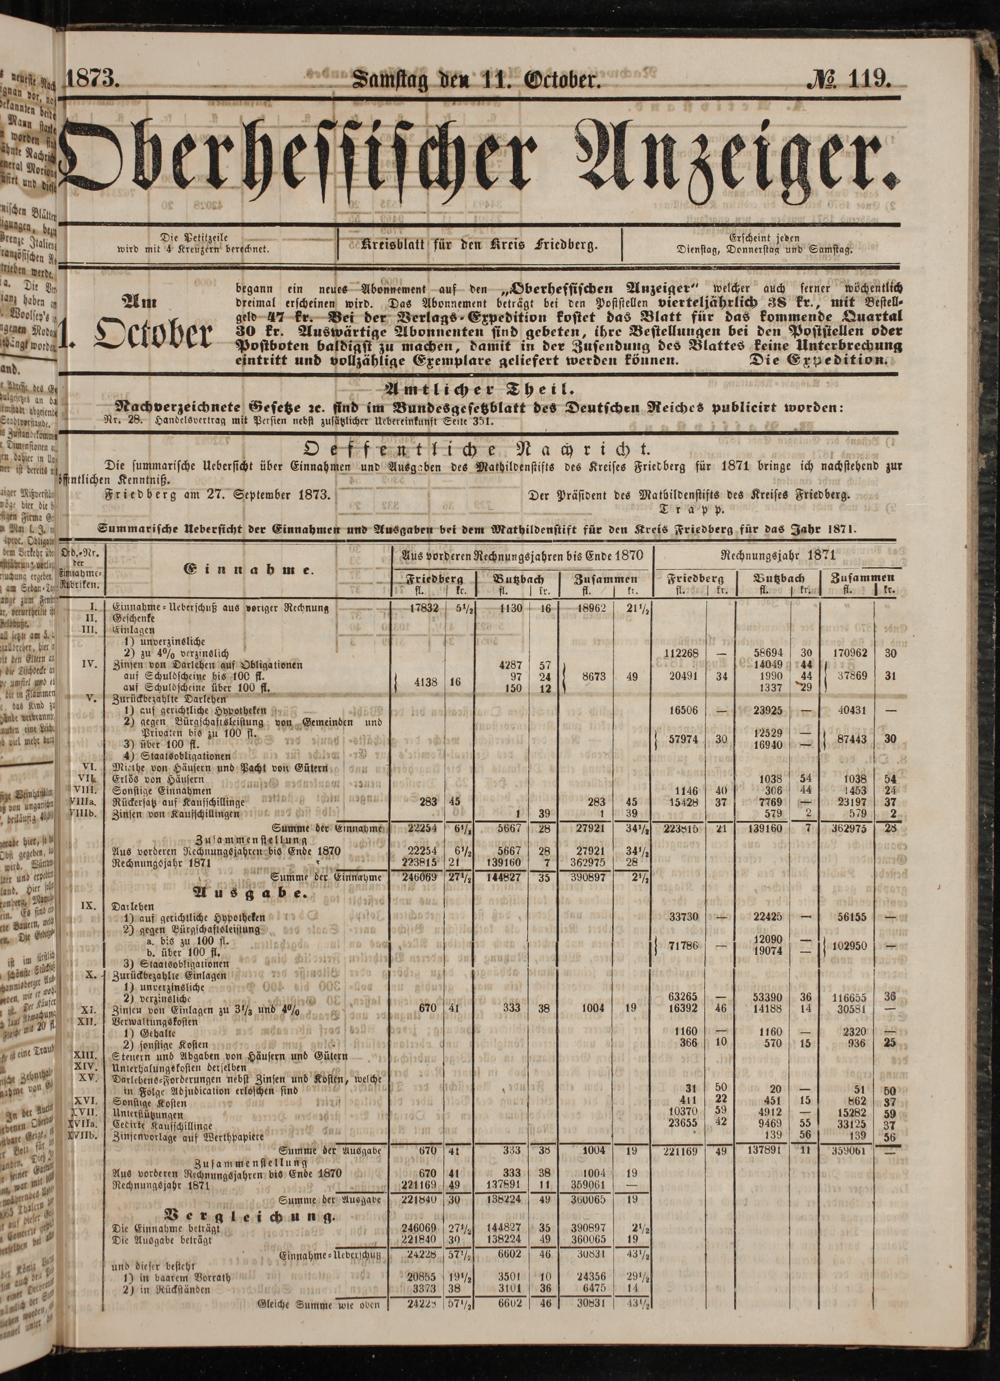 1873. Samstag den 11. October. № 119.
Oberhessischer Anzeiger.
Die Petitzeile
wird mit 4 Kreuzern berechnet.
Kreisblatt für den Kreis Friedberg.
Erscheint jeden
Dienstag, Donnerstag und Samstag.
Am
1. October
begann ein neues Abonnement auf den „Oberhessischen Anzeiger“ welcher auch ferner wöchentlich
dreimal erscheinen wird. Das Abonnement beträgt bei den Poststellen vierteljährlich 38 kr., mit Bestell-
geld 47 kr. Bei der Verlags-Expedition kostet das Blatt für das kommende Quartal
30 kr. Auswärtige Abonnenten sind gebeten, ihre Bestellungen bei den Poststellen oder
Postboten baldigst zu machen, damit in der Zusendung des Blattes keine Unterbrechung
eintritt und vollzählige Exemplare geliefert werden können. Die Expedition.
Amtlicher Theil.
Nachverzeichnete Gesetze ꝛc. sind im Bundesgesetzblatt des Deutschen Reiches publicirt worden:
Nr. 28. Handelsvertrag mit Persien nebst zusätzlicher Uebereinkunft Seite 351.
Oeffentliche Nachricht.
Die summarische Uebersicht über Einnahmen und Ausgaben des Mathildenstifts des Kreises Friedberg für 1871 bringe ich nachstehend zur
öffentlichen Kenntniß.
Friedberg am 27. September 1873. Der Präsident des Mathildenstifts des Kreises Friedberg.
Trapp.
Summarische Uebersicht der Einnahmen und Ausgaben bei dem Mathildenstift für den Kreis Friedberg für das Jahr 1871.
Ord.-Nr.
der
Einnahme-
Rubriken.
Einnahme.
Aus vorderen Rechnungsjahren bis Ende 1870 Rechnungsjahr 1871
Friedberg Butzbach Zusammen Friedberg Butzbach Zusammen
fl. kr. fl. kr. fl. kr. fl. kr. fl. kr. fl. kr.
I. Einnahme-Ueberschuß aus voriger Rechnung 17832 5½ 1130 16 18962 21½
II. Geschenke
III. Einlagen
1) unverzinsliche
2) zu 4% verzinslich 112268 — 58694 30 170962 30
IV. Zinsen von Darlehen auf Obligationen 4287 57 14049 44
auf Schuldscheine bis 100 fl. 4138 16 97 24 8673 49 20491 34 1990 44 37869 31
auf Schuldscheine über 100 fl. 150 12 1337 29
V. Zurückbezahlte Darlehen
1) auf gerichtliche Hypotheken 16506 — 23925 — 40431 —
2) gegen Bürgschaftsleistung von Gemeinden und
Privaten bis zu 100 fl. 12529 —
3) über 100 fl. 57974 30 16940 — 87443 30
4) Staatsobligationen
VI. Miethe von Häusern und Pacht von Gütern
VII. Erlös von Häusern 1038 54 1038 54
VIII. Sonstige Einnahmen 1146 40 306 44 1453 24
VIIIa. Rückersatz auf Kaufschillinge 283 45 283 45 15428 37 7769 — 23197 37
VIIIb. Zinsen von Kaufschillingen 1 39 1 39 579 2 579 2
Summe der Einnahme 22254 6½ 5667 28 27921 34½ 223815 21 139160 7 362975 28
Zusammenstellung
Aus vorderen Rechnungsjahren bis Ende 1870 22254 6½ 5667 28 27921 34½
Rechnungsjahr 1871 223815 21 139160 7 362975 28
Summe der Einnahme 246069 27½ 144827 35 390897 2½
Ausgabe.
IX. Darlehen
1) auf gerichtliche Hypotheken 33730 — 22425 — 56155 —
2) gegen Bürgschaftsleistung
a. bis zu 100 fl. 12090 —
b. über 100 fl. 71786 — 19074 — 102950 —
3) Staatsobligationen
X. Zurückbezahlte Einlagen
1) unverzinsliche
2) verzinsliche 63265 — 53390 36 116655 36
XI. Zinsen von Einlagen zu 3½ und 4% 670 41 333 38 1004 19 16392 46 14188 14 30581 —
XII. Verwaltungskosten
1) Gehalte 1160 — 1160 — 2320 —
2) sonstige Kosten 366 10 570 15 936 25
XIII. Steuern und Abgaben von Häusern und Gütern
XIV. Unterhaltungskosten derselben
XV. Darlehens-Forderungen nebst Zinsen und Kosten, welche
in Folge Adjudication erloschen sind 31 50 20 — 51 50
XVI. Sonstige Kosten 411 22 451 15 862 37
XVII. Unterstützungen 10370 59 4912 — 15282 59
XVIIa. Cedirte Kaufschillinge 23655 42 9469 55 33125 37
XVIIb. Zinsenvorlage auf Werthpapiere 139 56 139 56
Summe der Ausgabe 670 41 333 38 1004 19 221169 49 137891 11 359061 —
Zusammenstellung
Aus vorderen Rechnungsjahren bis Ende 1870 670 41 333 38 1004 19
Rechnungsjahr 1871 221169 49 137891 11 359061 —
Summe der Ausgabe 221840 30 138224 49 360065 19
Vergleichung.
Die Einnahme beträgt 246069 27½ 144827 35 390897 2½
Die Ausgabe beträgt 221840 30 138224 49 360065 19
Einnahme-Ueberschuß 24228 57½ 6602 46 30831 43½
und dieser besteht
1) in baarem Vorrath 20855 19½ 3501 10 24356 29½
2) in Rückständen 3373 38 3101 36 6475 14
Gleiche Summe wie oben 24228 57½ 6602 46 30831 43½